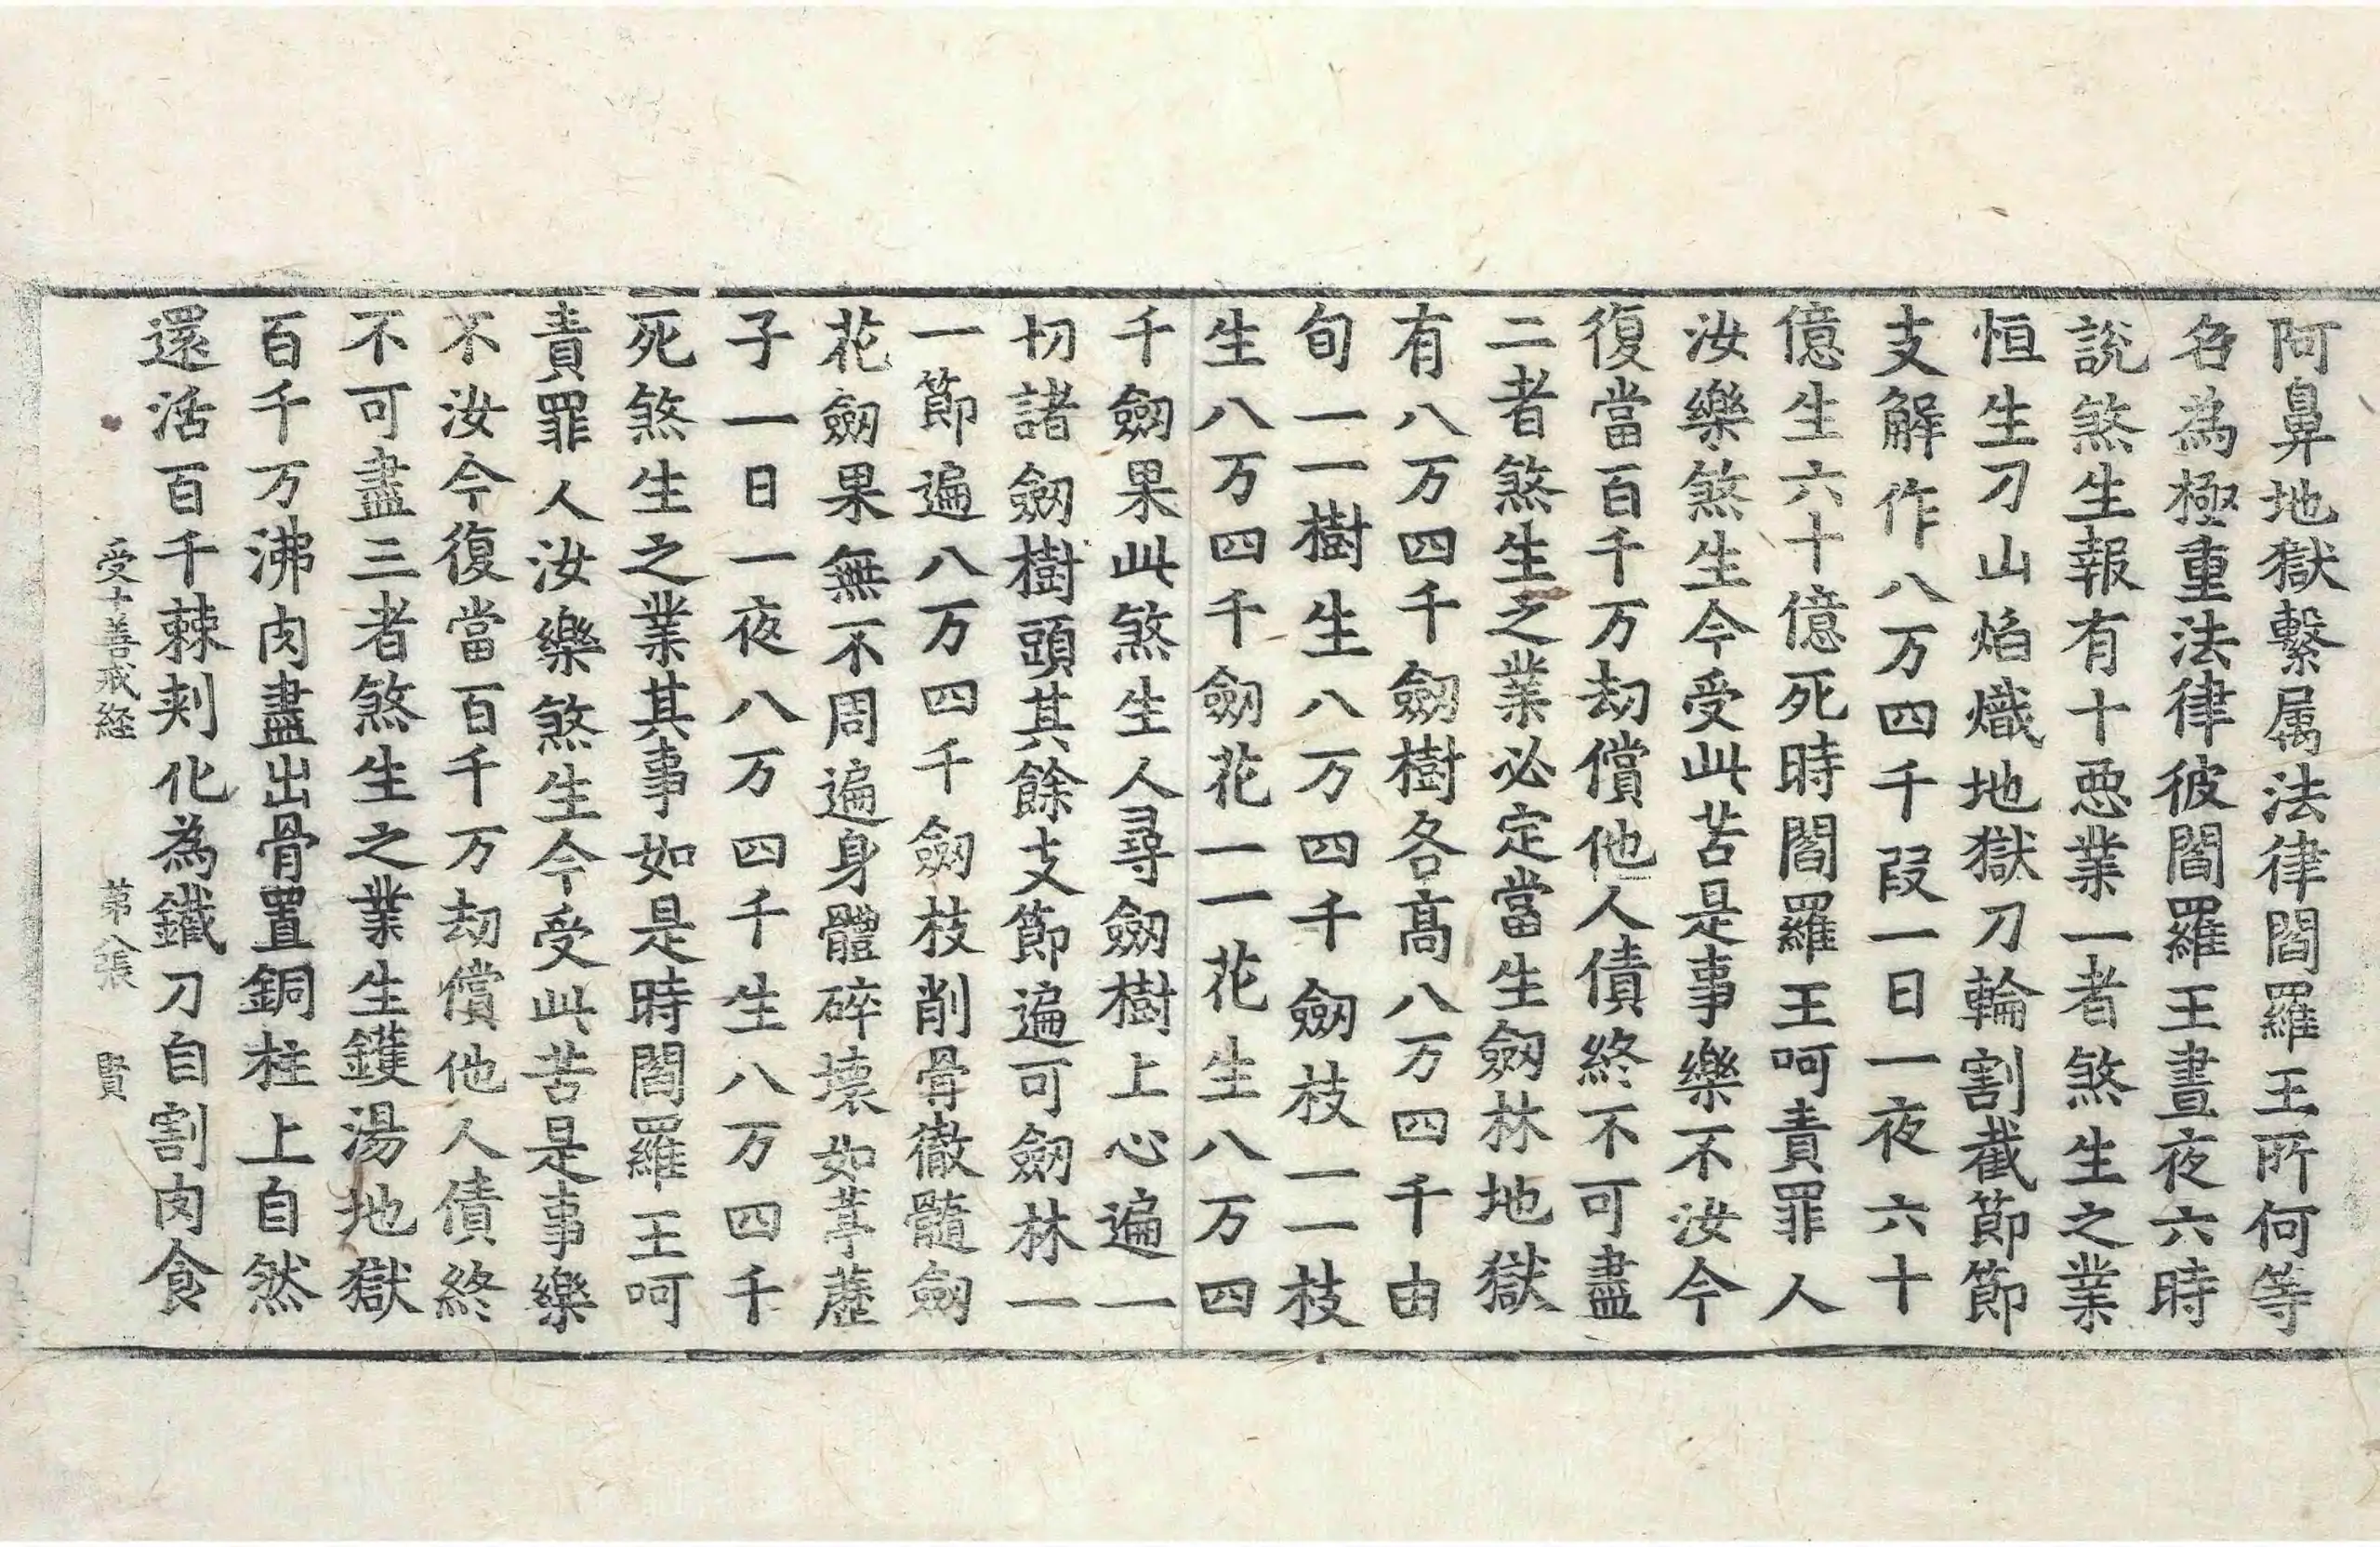 阿鼻地獄繫属法律閻羅王所何等
名為極重法律彼閻羅王晝夜六時
說煞生報有十惡業一者煞生之業
恒生刀山焰熾地獄刀輪割截節節
支解作八万四千段一日一夜六十
億生六十億死時閻羅王呵責罪人
汝樂煞生今受此苦是事樂不汝今
復當百千万劫償他人債終不可盡
二者煞生之業必定當生劒林地獄
有八万四千劒樹各髙八万四千由
旬一一樹生八万四千劒枝一一枝
生八万四千劒花一一花生八万四
千劒果此煞生人尋劒樹上心遍一
切諸劒樹頭其餘支節遍可劒林一
一節遍八万四千劒枝削骨徹髓劒
花劒果無不周遍身體碎壞如葶藶
子一日一夜八万四千生八万四千
死煞生之業其事如是時閻羅王呵
責罪人汝樂煞生今受此苦是事樂
不汝今復當百千万劫償他人債終
不可盡三者煞生之業生鑊湯地獄
百千万沸肉盡出骨置銅柱上自然
還活百千棘刾化為鐵刀自割肉食
受十善戒経 苐八張 賢